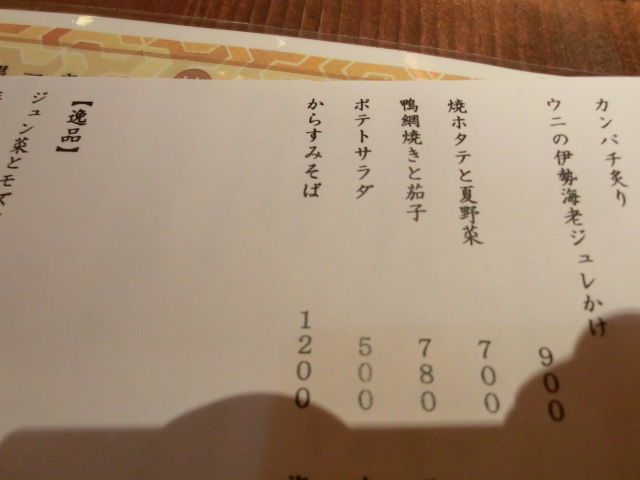 カンパチ炙り
ウニの伊勢海老ジュレかけ 900
焼ホタテと夏野菜 700
鴨網焼きと茄子 780
ポテトサラダ 500
からすみそば 1200
【逸品】
ジュン菜とモズ